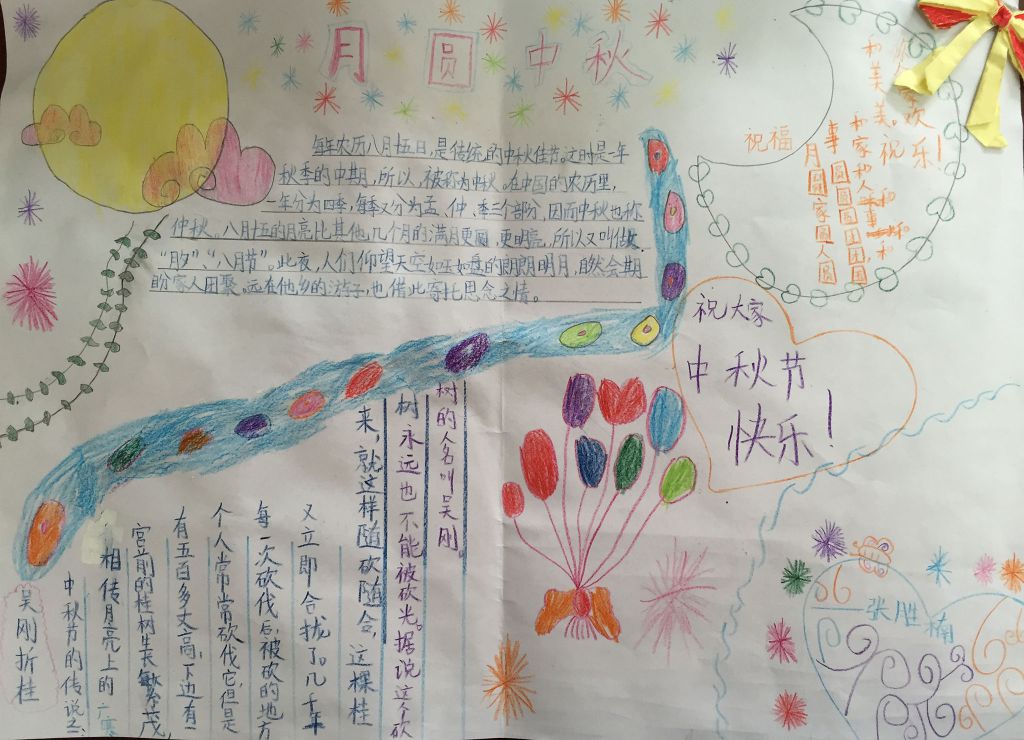 月圆中秋
每年农历八月十五日,是传统的中秋佳节。这时是一年
秋季的中期,所以,被称为中秋。在中国的农历里,
一年分为四季,每季又分为孟、仲、季三个部分,因而中秋也称
仲秋。八月十五的月亮比其他几个月的满月更圆,更明亮,所以又叫做
“月夕”、“八月节”。此夜,人们仰望天空如玉如盘的朗朗明月,自然会期
盼家人团聚。远在他乡的游子,也借此寄托思念之情。
祝福
月圆家圆人圆
事圆圆团团圆
和家和人
和美美。祝
欢乐!
祝大家
中秋节
快乐!
吴刚折桂
中秋节的传说之
相传月亮上的广寒
宫前的桂树生长繁茂,
有五百多丈高,下边有一
个人常常砍伐它,但是
每一次砍伐后,被砍的地方
又立即合拢了。几千年
来,就这样随砍随合,这棵桂
树永远也不能被砍光。据说这个砍
树的人名叫吴刚。
张胜楠